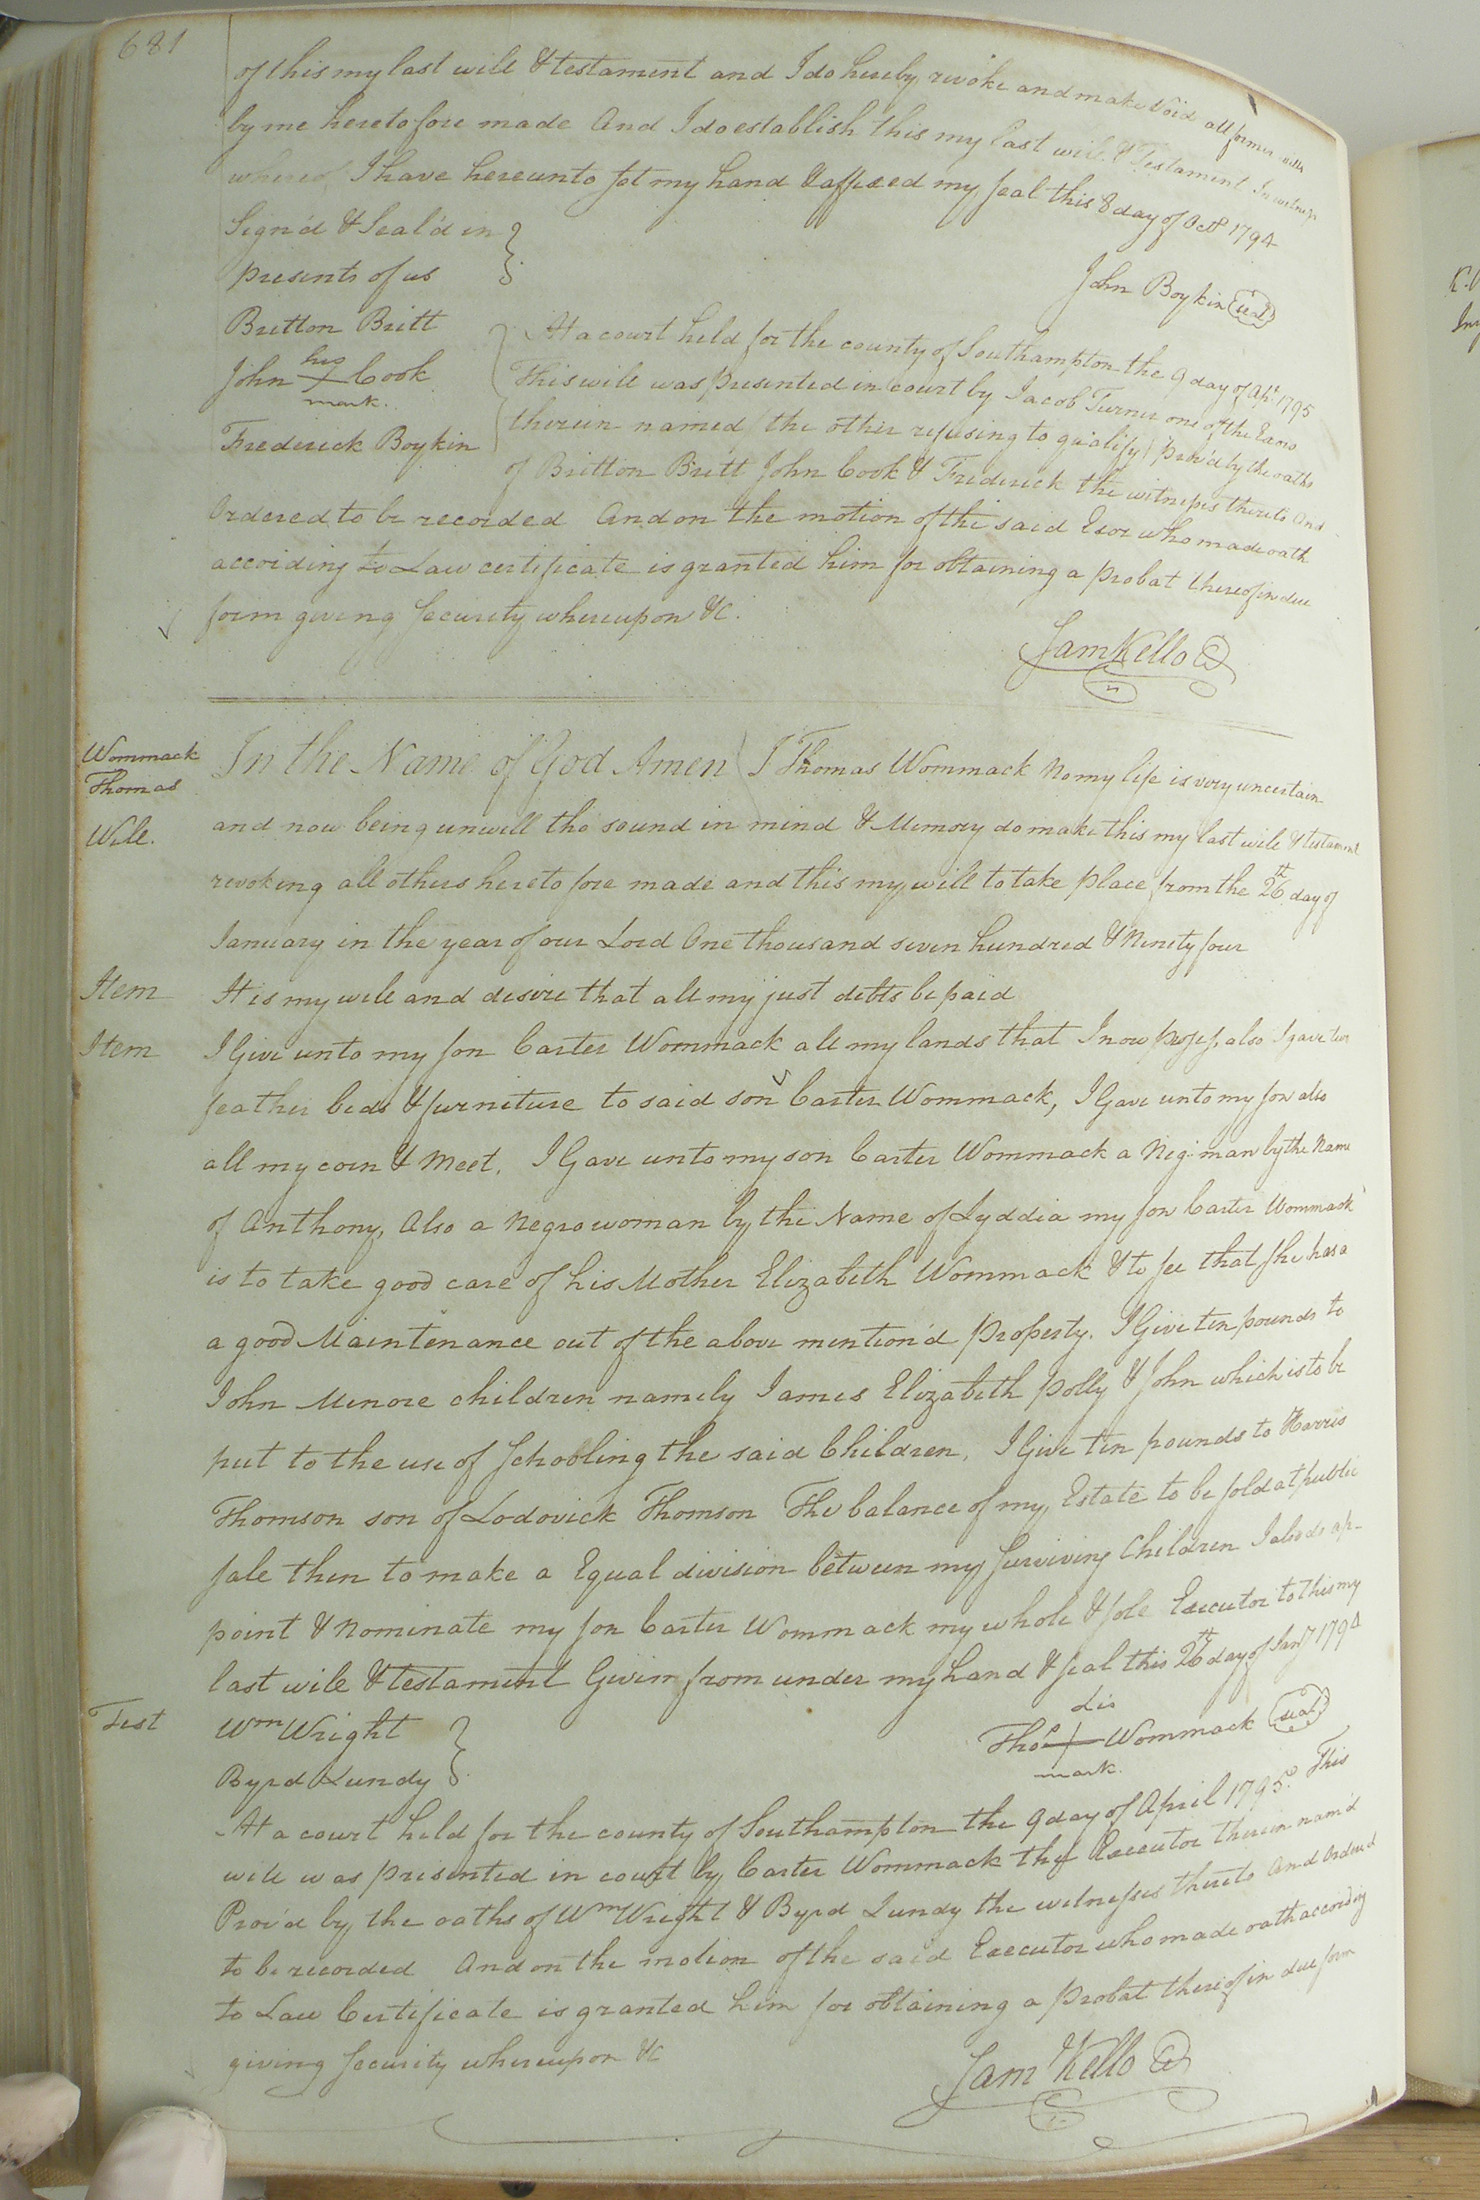 681
of this my last will & testament and I do hereby revoke and make Void all former wills
by me heretofore made And I do establish this my last will & Testament In witness
whereof I have hereunto set my hand & affixed my seal this 8 day of Octr 1794
Sign'd & Seal'd in
presents of us
John Boykin seal
Britton Britt
John his Cook
mark.
Frederick Boykin
At a court held for the county of Southampton the 9 day of Apl 1795
This will was presented in court by Jacob Turner one of the Exors
therein named (the other refusing to qualify) prov'd by the oaths
of Britton Britt John Cook & Frederick the witnesses thereto And
Ordered to be recorded And on the motion of the said Exor who made oath
according to Law certificate is granted him for obtaining a probat thereof in due
form giving Security whereupon &c.
Sam Kello
Wommack
Thomas
Will.
In the Name of God Amen I Thomas Wommack No my life is very uncertain
and now being unwell tho sound in mind & Memory do make this my last will & testament
revoking all others heretofore made and this my will to take place from the 26th day of
January in the year of our Lord One thousand seven hundred & Ninety four
Item It is my will and desire that all my just debts be paid
Item I Give unto my son Carter Wommack all my lands that I now possess, also I gave two
feather beds & furniture to said son Carter Wommack, I Gave unto my son also
all my corn & Meet. I Gave unto my son Carter Wommack a Neg. man by the Name
of Anthony, Also a Negro woman by the Name of Lyddia my son Carter Wommack
is to take good care of his Mother Elizabeth Wommack & to see that she has a
a good Maintenance out of the above mention'd property. I Give ten pounds to
John Menore children namely James Elizabeth Polly & John which is to be
put to the use of Schooling the said Children. I Give ten pounds to Harris
Thomson son of Lodovick Thomson The balance of my Estate to be sold at public
sale then to make a Equal division between my surviving Children I also do ap-
point & Nominate my son Carter Wommack my whole & sole Executor to this my
last will & testament Given from under my hand & seal this 26th day of Jany 1794
Test Wm Wright
Byrd Lundy
his
Thos Wommack seal
mark.
At a court held for the county of Southampton the 9 day of April 1795. This
will was presented in court by Carter Wommack the Executor therein nam'd
Prov'd by the oaths of Wm Wright & Byrd Lundy the witnesses thereto And Ordered
to be recorded And on the motion of the said Executor who made oath according
to Law Certificate is granted him for obtaining a probat thereof in due form
giving Security whereupon &c
Sam Kello